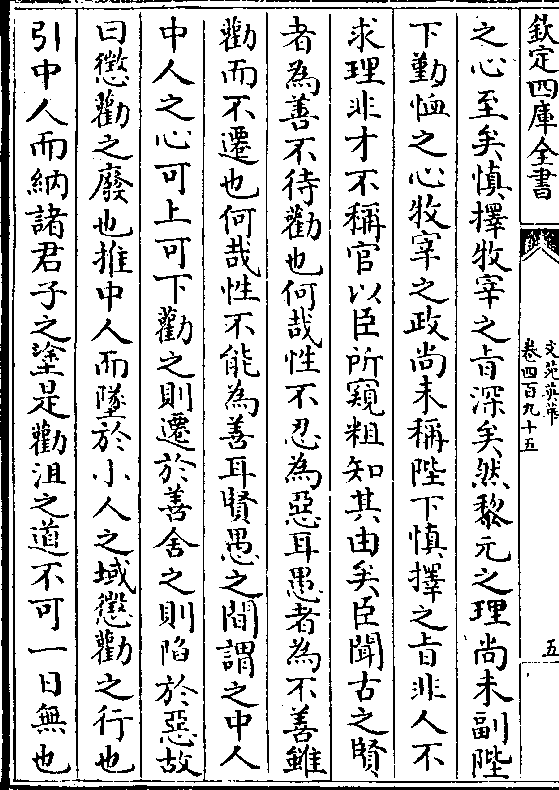 欽定四庫全書
文苑英華
卷四百九十五
五
之心至矣慎擇牧宰之㫖深矣然黎元之理尚未副陛
下勤恤之心牧宰之政尚未稱陛下慎擇之㫖非人不
求理非才不稱官以臣所窺粗知其由矣臣聞古之賢
者為善不待勸也何哉性不忍為惡耳愚者為不善雖
勸而不遷也何哉性不能為善耳賢愚之間謂之中人
中人之心可上可下勸之則遷於善舍之則陷於惡故
曰懲勸之廢也推中人而墜於小人之域懲勸之行也
引中人而納諸君子之塗是勸沮之道不可一日無也